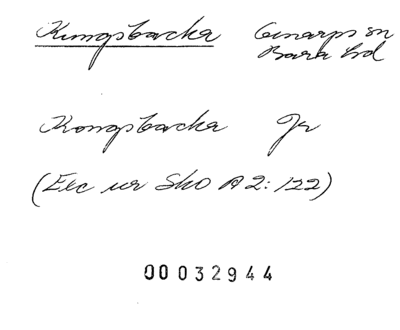 Kungsbacka Genarps sn
Bara hd
Kongsbacka Jr
(Exc ur Sko A 2: 122)
00032944